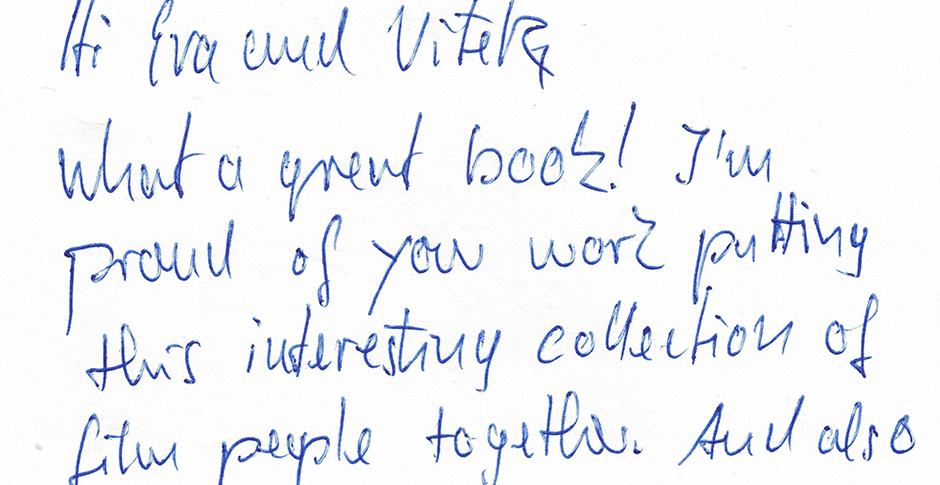 Hi Eva and Vitek,
what a great book! I'm
proud of you work putting
this interesting collection of
film people together. And also